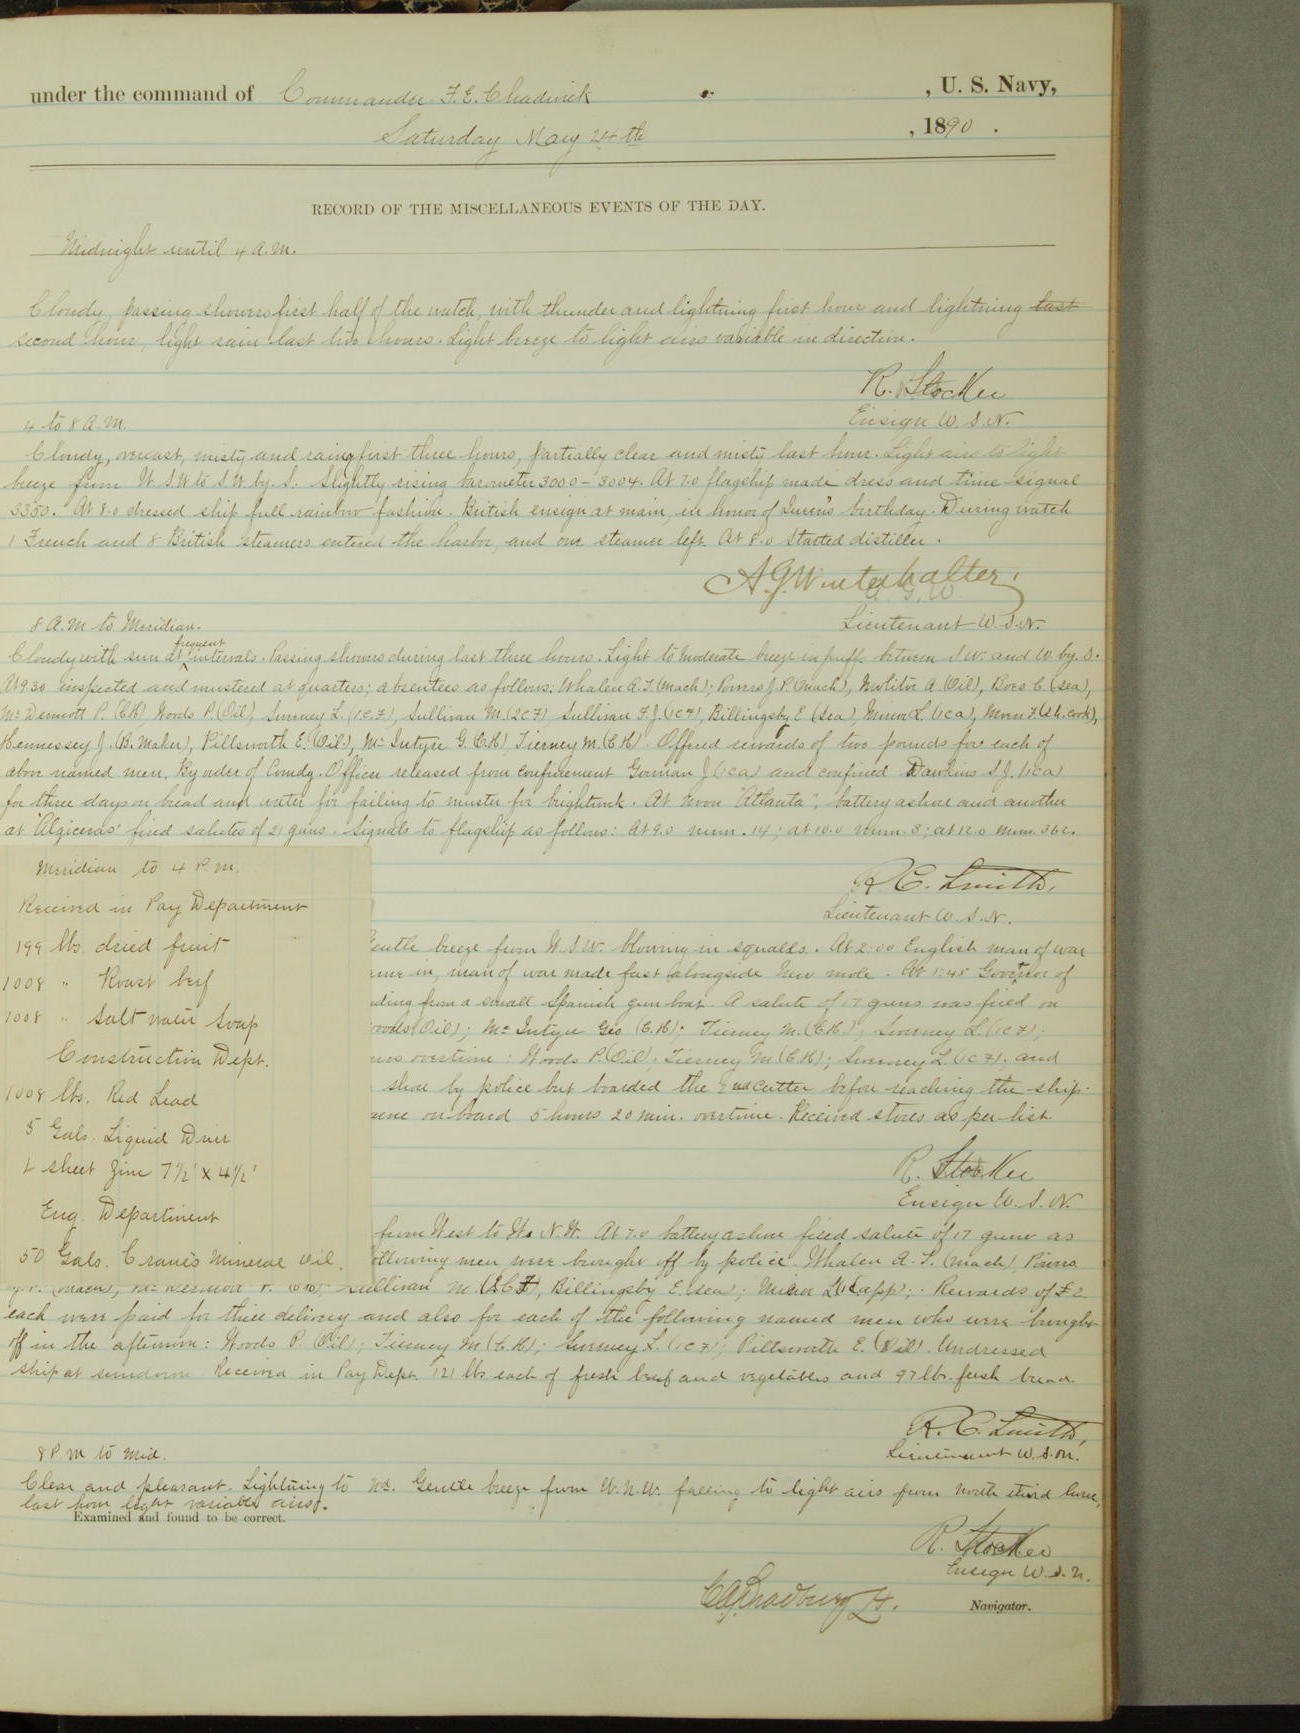 under the command of Commander F. E. Chadwick , U. S. Navy,
Saturday May 24th , 1890 .
RECORD OF THE MISCELLANEOUS EVENTS OF THE DAY.
Midnight until 4 A.M.
Cloudy, passing showers first half of the watch, with thunder and lightning first hour and lightning last
second hour, light rain last two hours. Light breeze to light airs variable in direction.
R. Stocker
Ensign U.S.N.
4 to 8 A.M.
Cloudy, overcast, misty and rainy first three hours, partially clear and misty last hour. Light airs to light
breeze from W.S.W to S.W. by. S. Slightly rising barometer 3000 - 3004. At 7.0 flagship made dress and time signal
3350. At 8.0 dressed ship full rainbow fashion. British ensign at main, in honor of Queen's birthday. During watch
1 French and 8 British steamers entered the harbor, and one steamer left. At 8.0 started distiller.
A.G. Winterhalter,
A. G. W
Lieutenant U.S.N.
8 A.M to Meridian.
Cloudy with sun at frequent intervals. Passing showers during last three hours. Light to moderate breeze in puffs between S.W. and W. by. S.
At 9.30 inspected and mustered at quarters; absentees as follows: Whalen A.T. (Mach); Powers J.P. (Mach), Molitor A (Oil), Boes C. (Sea),
McDermott P. (C.H) Woods P. (Oil) Surney L. (1C.F), Sullivan M. (2CF) Sullivan F.J. (1CF), Billingsby E (Sea), Minor L. (1ca), Moen F. (Sh. Cook),
Hennessey J. (B. Maker), Pillsworth E. (Oil), McIntyre G. (C.H), Tierney M. (C.H). Offered rewards of two pounds for each of
above named men. By order of Comdg. Officer released from confinement Gorman J (1ca) and confined Dawkins S.J. (1ca)
for three days on bread and water for failing to muster for brightwork. At noon "Atlanta", battery ashore and another
at "Algiceras" fired salutes of 21 guns. Signals to flagship as follows: At 9.0 num. 14; at 10.0 num. 3; at 12.0 num. 362.
R. C. Smith,
Lieutenant U.S.N.
Meridian to 4 P.M.
Received in Pay Department
199 lbs. dried fruit
1008 " Roast beef
1008 " Salt water Soap
Construction Dept.
1008 lbs. Red Lead
5 Gals. Liquid Drier
1 sheet Zinc 7½' x 4½'
Eng. Department
50 Gals. Crane's Mineral Oil.
Gentle breeze from W.S.W. blowing in squalls. At 2:00 English man of war
in, man of war made fast alongside New mole. At 1:45 Governor of
from a small Spanish gun boat. A salute of 17 guns was fired on
(Oil); McIntyre Geo (C.H); Tierney M. (C.H.); Surney L. (1CF);
overtime: Woods P. (Oil); Tierney M (C.H); Surney L (1CF); and
shore by police but boarded the 2nd Cutter before reaching the ship.
on board 5 hours 20 min. overtime. Received stores as per list
R. Stocker
Ensign U.S.N.
from West to W. N.W. At 7.0 battery ashore fired salute of 17 guns as
following men were brought off by police. Whalen A. T. (Mach), Powers
J.P. (Mach), McDermott P. (C.H); Sullivan M. (2CF), Billingsby E. (Sea); Minor L (1Capp); Rewards of £2
each were paid for their delivery and also for each of the following named men who were brought
off in the afternoon: Woods P. (Oil); Tierney M (C.H); Surney L. (1CF); Pillsworth E. (Oil). Undressed
ship at sundown. Received in Pay Dept. 121 lbs each of fresh beef and vegetables and 97 lbs. fresh bread.
R. C. Smith,
Lieutenant U.S.N.
8 P.M to Mid.
Clear and pleasant. Lightning to Nd. Gentle breeze from W.N.W. falling to light airs from north third hour,
last hour light variable airs.
Examined and found to be correct.
R. Stocker
Ensign U.S.N.
Navigator.